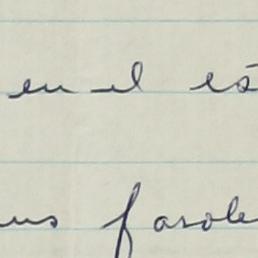 en el es
us farole